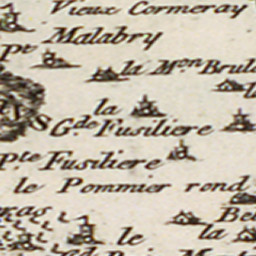 Vieux Cormeray
Pte Malabry
la Mon Brul
la
S Gde Fusiliere
Pte Fusiliere
le Pommier rond
Be
le
la